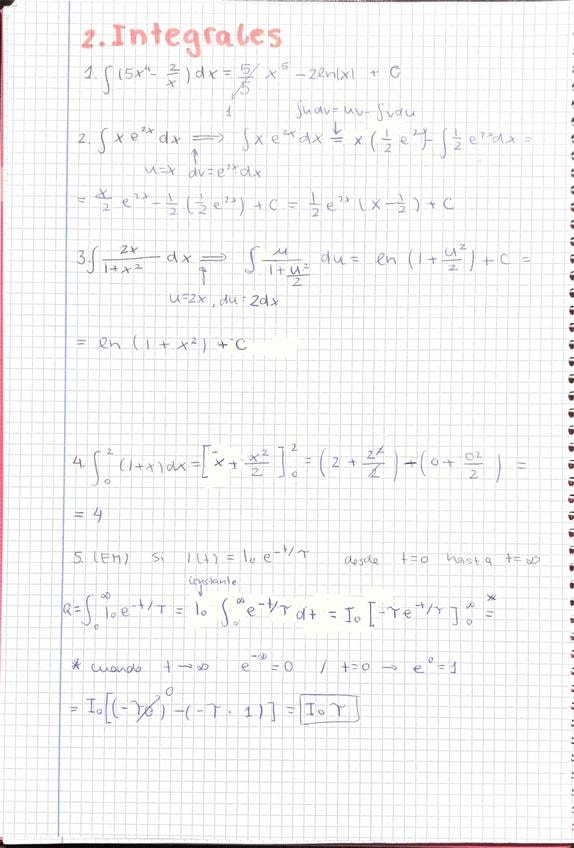 2. Integrales
1. ∫(5x⁴ - 2/x) dx = 5/5 x⁵ - 2ln|x| + C
1
∫udv = uv - ∫vdu
2. ∫ x e^{2x} dx ⟹ ∫ x e^{2x} dx = x (1/2 e^{2x}) - ∫ 1/2 e^{2x} dx =
u=x dv=e^{2x} dx
= x/2 e^{2x} - 1/2 (1/2 e^{2x}) + C = 1/2 e^{2x} (x - 1/2) + C
3. ∫ 2x/(1+x²) dx ⟹ ∫ u/(1+u²/2) du = ln (1 + u²/2) + C =
u=2x, du=2dx
= ln (1 + x²) + C
4. ∫₀² (1+x) dx = [x + x²/2]₀² = (2 + 2²/2) - (0 + 0²/2) =
= 4
5. (EM) si I(t) = I₀ e^{-t/τ} desde t=0 hasta t=∞
constante
Q = ∫₀^∞ I₀ e^{-t/τ} = I₀ ∫₀^∞ e^{-t/τ} dt = I₀ [-τ e^{-t/τ}]₀^∞ =*
* cuando t → ∞ e^{-∞} = 0 / t=0 → e⁰ = 1
= I₀ [(-τ0)⁰ - (-τ · 1)] = I₀ τ